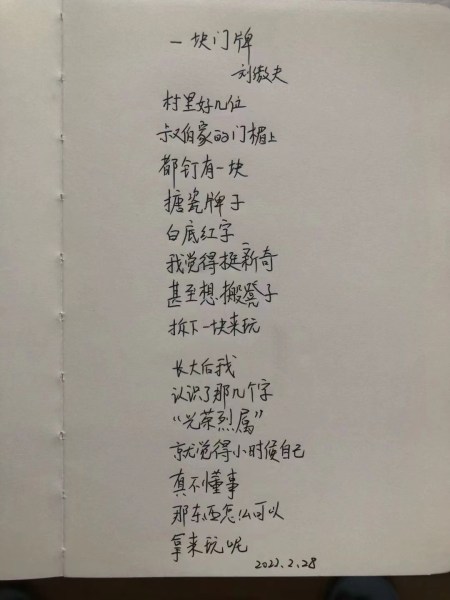 一块门牌
刘傲夫
村里好几位
叔伯家的门楣上
都钉有一块
搪瓷牌子
白底红字
我觉得挺新奇
甚至想搬凳子
拆下一块来玩
长大后我
认识了那几个字
“光荣烈属”
就觉得小时候自己
真不懂事
那东西怎么可以
拿来玩呢
2022.2.28